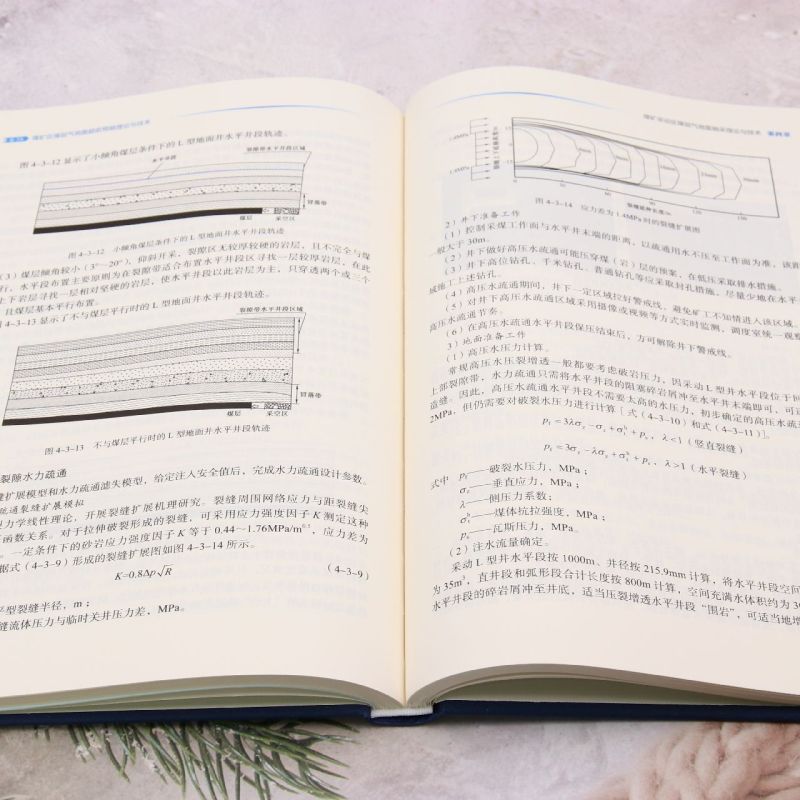 煤矿区煤层气地面抽采预测理论与技术
图 4-3-12 显示了小倾角煤层条件下的 L 型地面井水平井段轨迹。
裂隙带水平井段区域
水平井段
冒落带
煤层
采空区
图 4-3-12 小倾角煤层条件下的 L 型地面井水平井段轨迹
(3)煤层倾角较小(3°~20°),仰斜开采,裂隙区无较厚较硬的岩层,且不完全与煤
行,水平段布置主要原则为在裂隙带适合布置水平井段区寻找一层较厚岩层,在此
上下岩层寻找一层相对坚硬的岩层,使水平井段以此岩层为主,只穿透两个或三个
且煤层基本平行布置。
图 4-3-13 显示了不与煤层平行时的 L 型地面井水平井段轨迹。
裂隙带水平井段区域
冒落带
煤层
采空区
图 4-3-13 不与煤层平行时的 L 型地面井水平井段轨迹
裂隙水力疏通
缝扩展模型和水力疏通滤失模型,给定注入安全值后,完成水力疏通设计参数。
疏通裂缝扩展模拟
力学线性理论,开展裂缝扩展机理研究。裂缝周围网络应力与距裂缝尖
函数关系。对于拉伸破裂形成的裂缝,可采用应力强度因子 K 测定这种
。一定条件下的砂岩应力强度因子 K 等于 0.44~1.76MPa/m0.5,应力差为
据式(4-3-9)形成的裂缝扩展图如图 4-3-14 所示。
K=0.8Δp√R (4-3-9)
型裂缝半径,m;
缝流体压力与临时关井压力差,MPa。
煤矿采动区煤层气地面抽采理论与技术 第四章
1.4MPa
1.4MPa
15
0
-15
0 30 60 90 120 150
裂缝延伸长度/m
图 4-3-14 应力差为 1.4MPa 时的裂缝扩展图
2)井下准备工作
(1)控制采煤工作面与水平井末端的距离,以疏通用水不压至工作面为准,该距
一般大于 30m。
(2)井下做好高压水疏通可能压穿煤(岩)层的预案,在低压采取排水措施。
(3)井下高位钻孔、千米钻孔、普通钻孔等应采取封孔措施,尽量少地在水平
域施工上述钻孔。
(4)高压水疏通期间,井下一定区域拉好警戒线,避免矿工不知情进入该区域。
(5)对井下高压水疏通区域采用摄像或视频等方式实时监测,调度室统一观察
高压水疏通节奏。
(6)在高压水疏通水平井段保压结束后,方可解除井下警戒线。
3)地面准备工作
(1)高压水压力计算。
常规高压水压裂增透一般都要考虑破岩压力,因采动 L 型井水平段位于
上部裂隙带,水力疏通只需将水平井段的阻塞碎岩屑冲至水平井末端即可,可
造缝。因此,高压水疏通水平井段不需要太高的水压力,初步确定的高压水疏
2MPa,但仍需要对破裂水压力进行计算[式(4-3-10)和式(4-3-11)]。
pf=3λσz-σz+σth+pw,λ<1(竖直裂缝)
pf=3σz-λσz+σth+pw,λ>1(水平裂缝)
式中 pf——破裂水压力,MPa;
σz——垂直应力,MPa;
λ——侧压力系数;
σth——煤体抗拉强度,MPa;
pw——瓦斯压力,MPa。
(2)注水流量确定。
采动 L 型井水平段按 1000m、井径按 215.9mm 计算,将水平井段空间
为 35m3,直井段和弧形段合计长度按 800m 计算,空间充满水体积约为
水平井段的碎岩屑冲至井底,适当压裂增透水平井段“围岩”,可适当地增